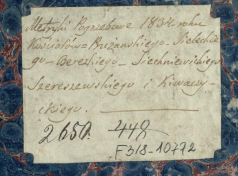 Metryki Pogrzebowe 1834 roku
Kościołow Prużanskiego - Sielecki-
ego - Bereskiego - Siechniewickiego
Szereszewskiego i Kiwaczy-
ckiego.
2650. 448
F 318-10792